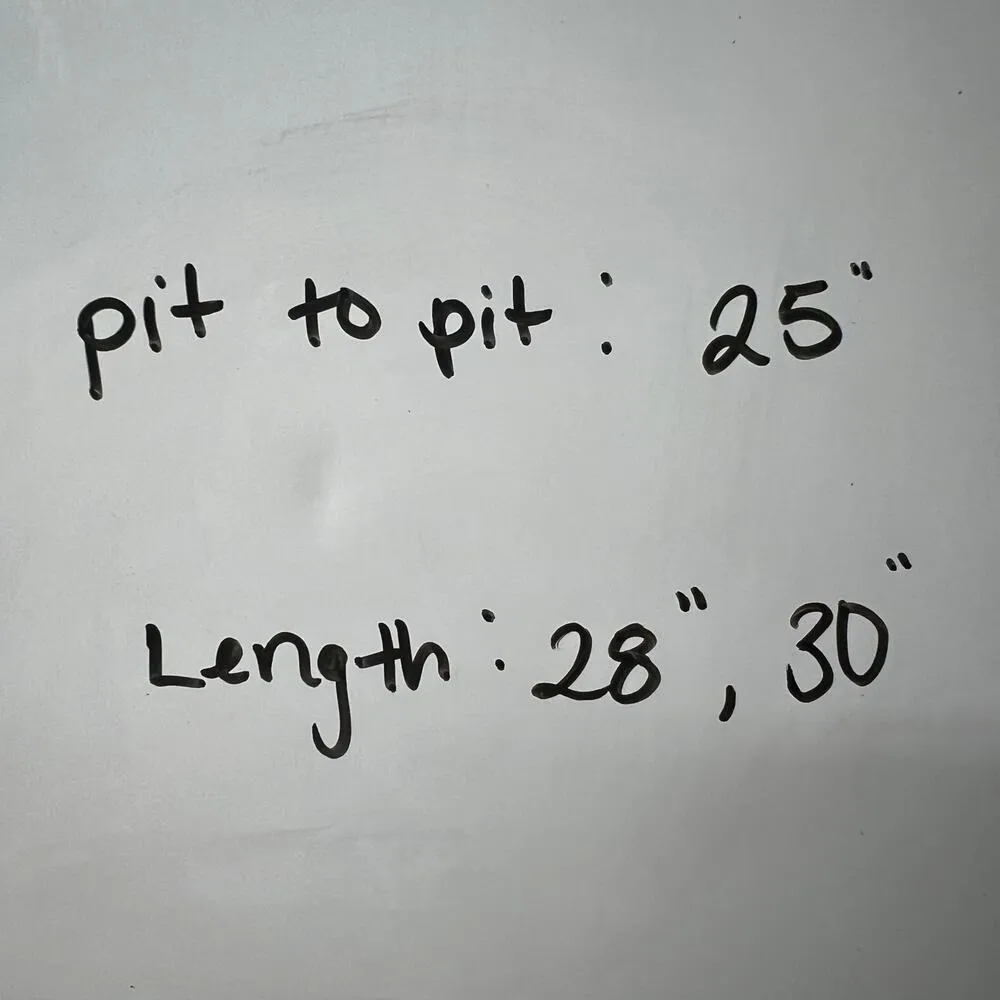 pit to pit : 25"
Length : 28", 30"